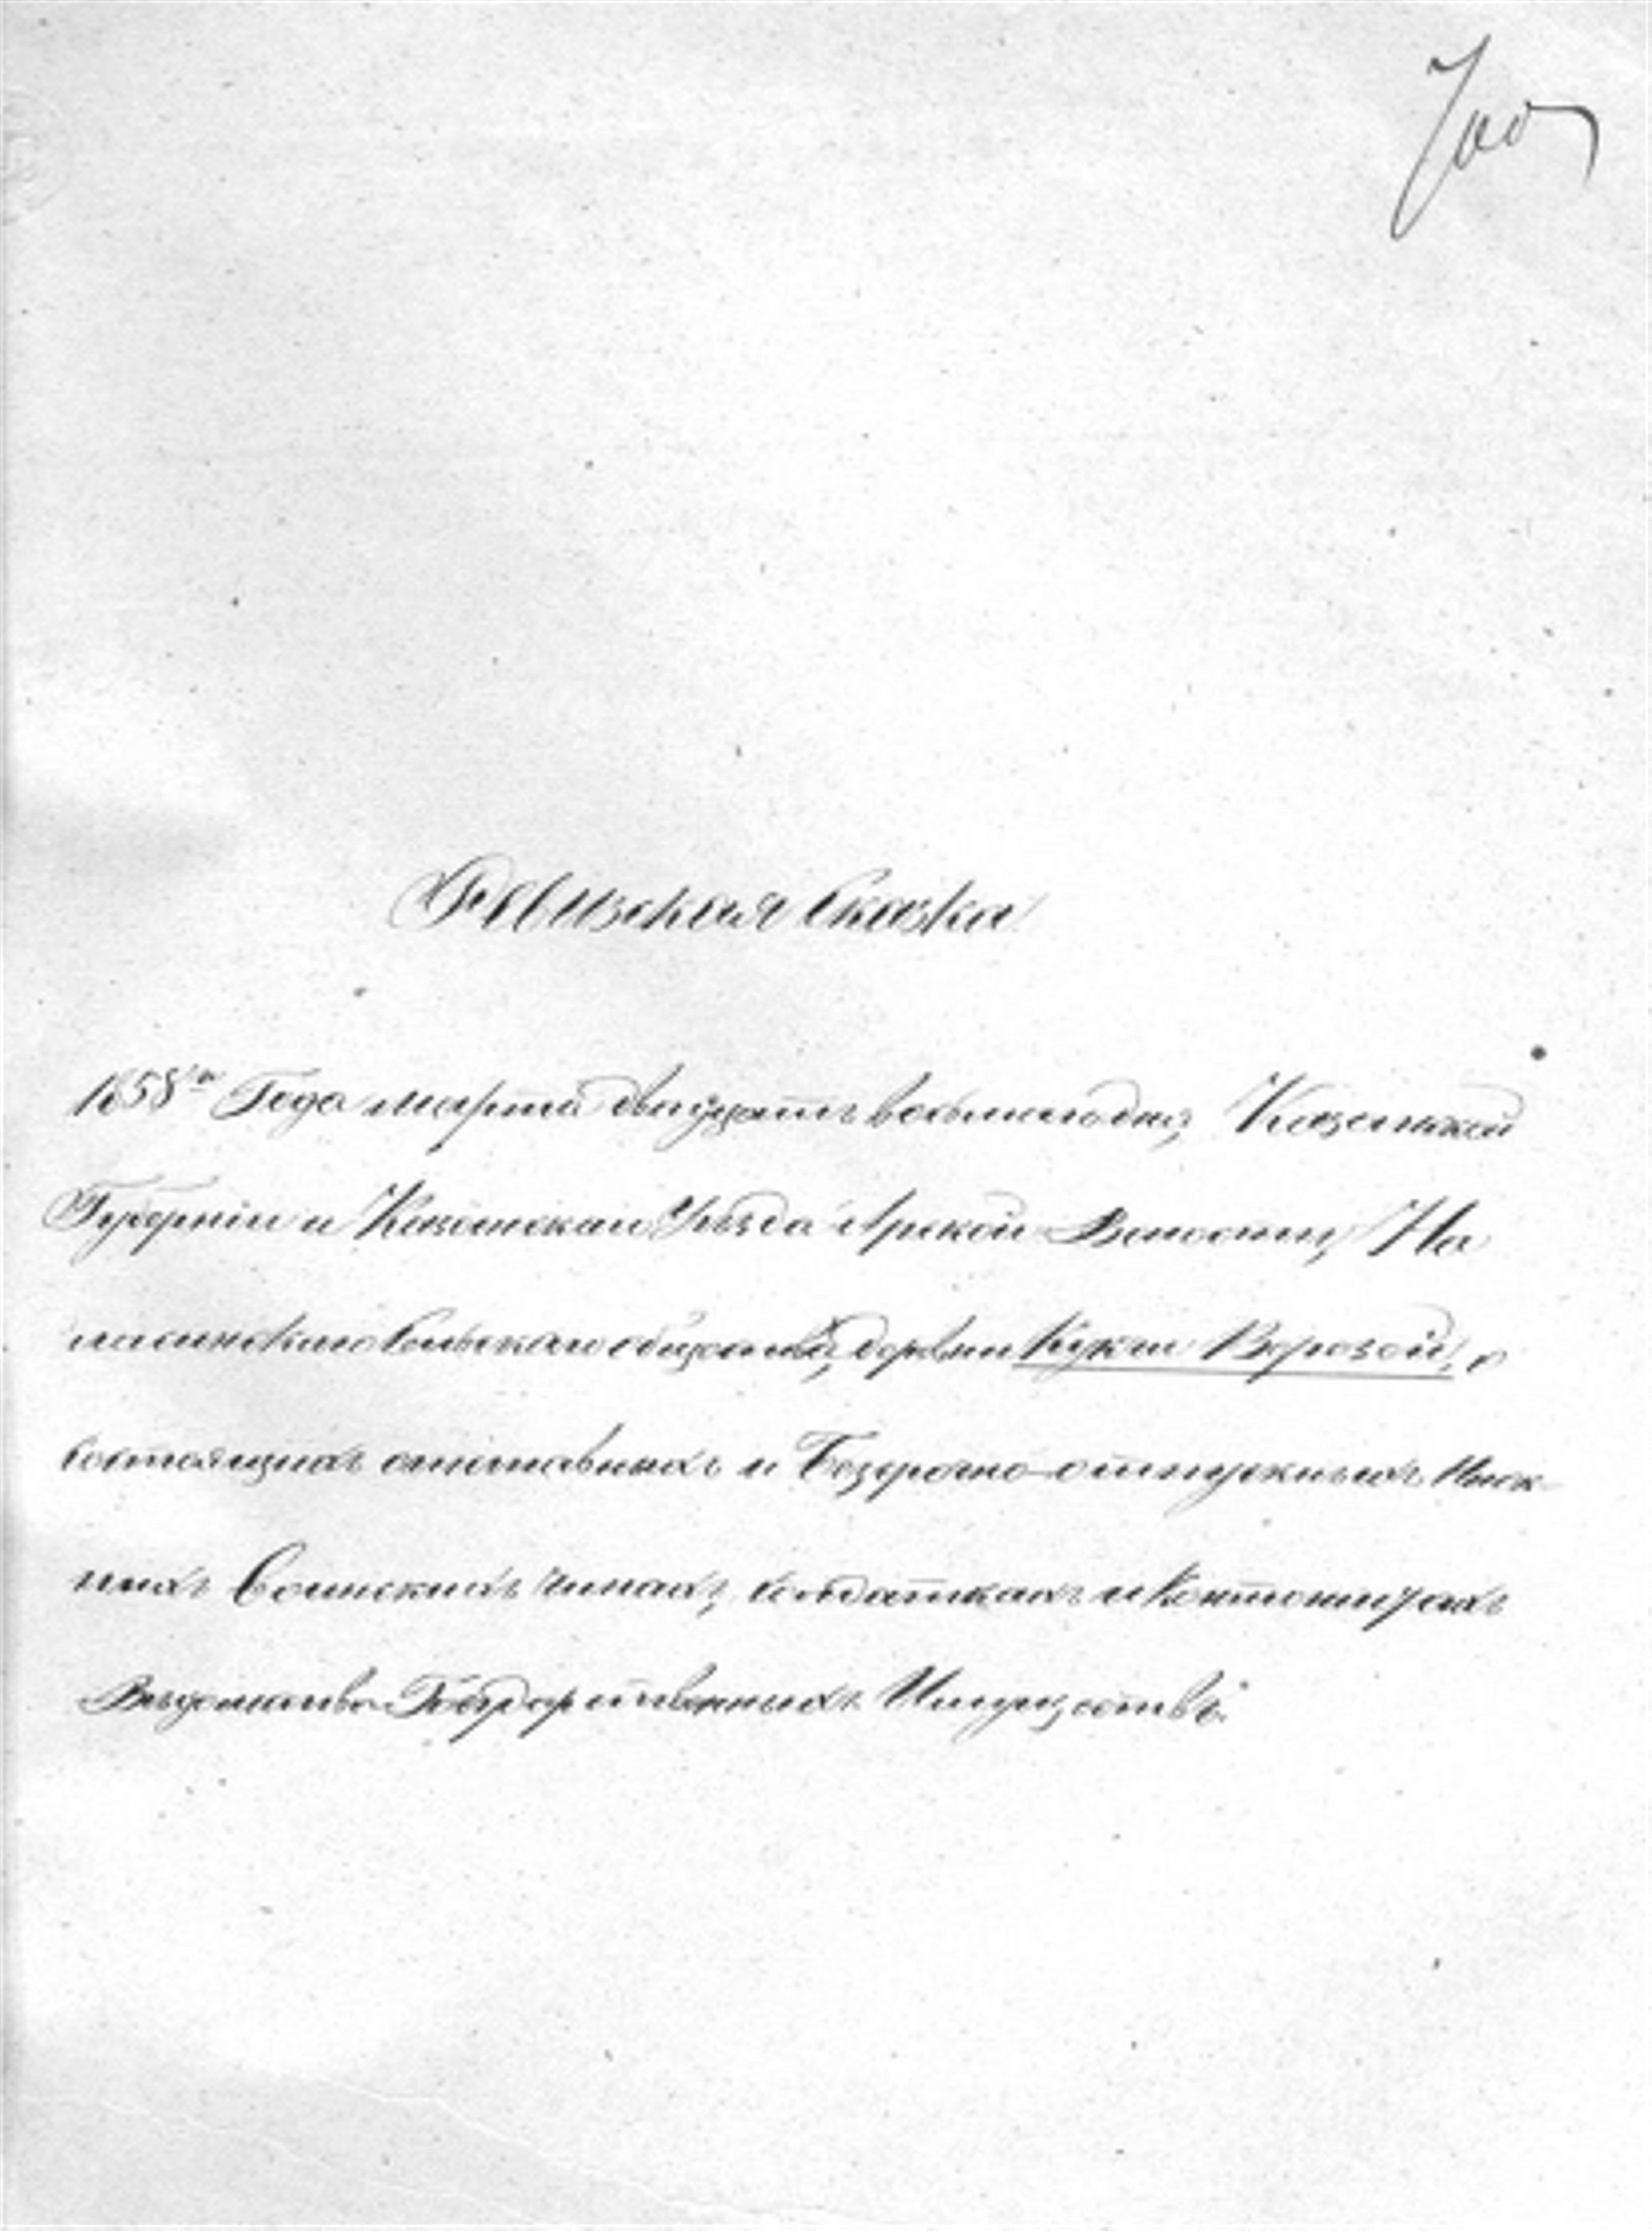 Ревизская Сказка
1858го Года марта двадцать восьмаго дня, Казанской
Губернiи и Казанскаго Уѣзда Арской Волости, На
ласинскаго Сельскаго общества, деревни Кукчи Верезой, о
состоящихъ отставныхъ и Безсрочно-отпускныхъ Ниж-
нихъ Воинскихъ чинахъ, солдаткахъ и Кантонистахъ
Вѣдомства Государственныхъ Имуществъ.